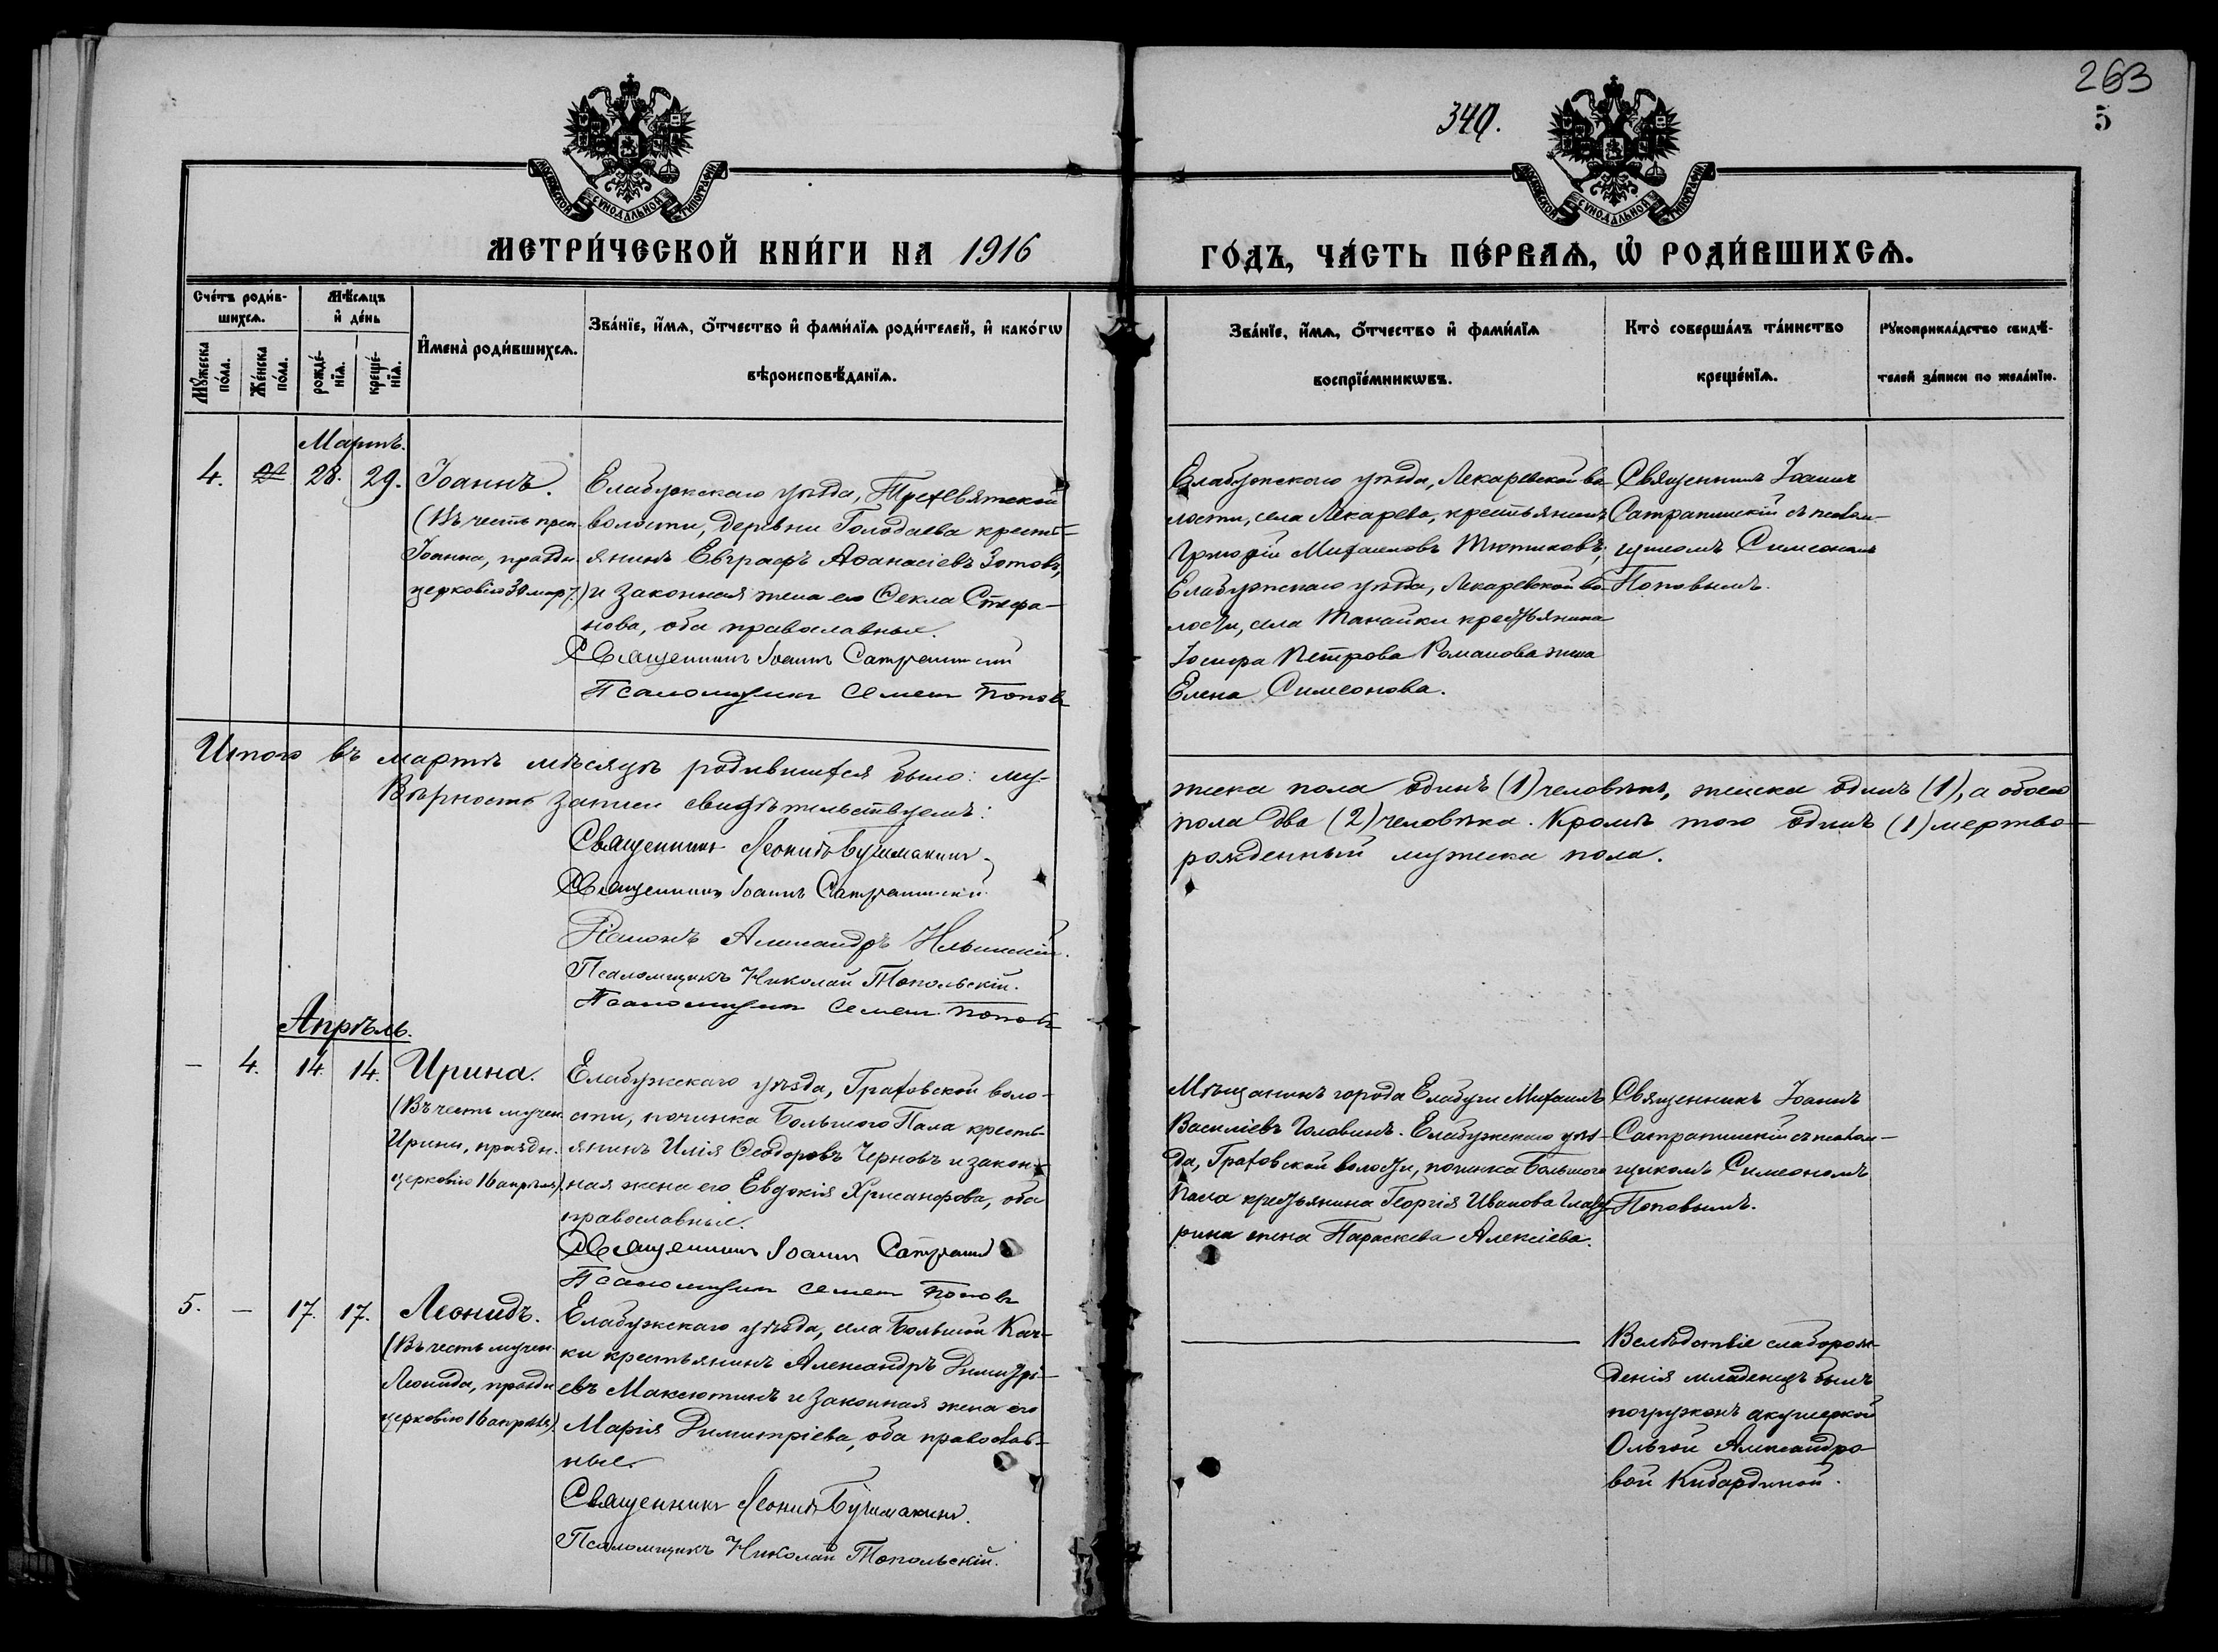 263
340.
5
МОСКОВСКОЙ СѴНОДАЛЬНОЙ ТИПОГРАФІИ
МОСКОВСКОЙ СѴНОДАЛЬНОЙ ТИПОГРАФІИ
МЕТРИ́ЧЕСКОЙ КНИ́ГИ НА 1916
ГО́ДЪ, ЧА́СТЬ ПЕ́РВАѦ, Ѡ҆ РОДИ́ВШИХСѦ.
Сче́тъ роди́в-
шихсѧ.
Мꙋ́жеска
по́ла.
Же́нска
по́ла.
Мѣ́сѧцъ
и҆ де́нь
рожде́-
нїѧ.
креще́-
нїѧ.
И҆мена̀ роди́вшихсѧ.
Зва́нїе, и҆́мѧ, ѻ҆́тчество и҆ фами́лїѧ роди́телей, и҆ како́гѡ
вѣроисповѣ́данїѧ.
Зва́нїе, и҆́мѧ, ѻ҆́тчество и҆ фами́лїѧ
воспрїе́мникѡвъ.
Кто̀ соверша́лъ та́инство
креще́нїѧ.
Рꙋкоприкла́дство свидѣ́-
телей за́писи по жела́нїю.
Мартъ.
4. 28. 29. Іоаннъ.
(Въ честь преп.
Іоанна, праздн.
церковію 30 март.)
Елабужскаго уѣзда, Трехсвятской
волости, деревни Голодаева кресть-
янинъ Евграфъ Аѳанасіевъ Зотовъ,
и законная жена его Ѳекла Стефа-
нова, оба православные.
Священникъ Іоаннъ Сатрапинскій
Псаломщикъ Семенъ Поповъ
Елабужскаго уѣзда, Лекаревской во-
лости, села Лекарева, крестьянинъ
Григорій Михаиловъ Тютиковъ;
Елабужскаго уѣзда, Лекаревской во-
лости, села Танайки крестьянина
Іосифа Петрова Романова жена
Елена Симеонова.
Священникъ Іоаннъ
Сатрапинскій съ псалом-
щикомъ Симеономъ
Поповымъ.
Итого въ мартѣ мѣсяцѣ родившихся было: му-
жска пола одинъ (1) человѣкъ, женска одинъ (1), а обоего
пола два (2) человѣка. Кромѣ того одинъ (1) мертво-
рожденный мужска пола.
Вѣрность записи свидѣтельствуемъ:
Священникъ Леонидъ Бушмакинъ.
Священникъ Іоаннъ Сатрапинскій
Діаконъ Александръ Ильинскій.
Псаломщикъ Николай Топольскій.
Псаломщикъ Семенъ Поповъ
Апрѣль.
— 4. 14. 14. Ирина.
(Въ честь мучен.
Ирины, праздн.
церковію 16 апрѣля).
Елабужскаго уѣзда, Граховской воло-
сти, починка Большого Пала кресть-
янинъ Илія Ѳеодоровъ Черновъ и закон-
ная жена его Евдокія Хрисанфова, оба
православные.
Священникъ Іоаннъ Сатрапин
Псаломщикъ Семенъ Поповъ
Мѣщанинъ города Елабуги Михаилъ
Василіевъ Головинъ. Елабужскаго уѣз-
да, Граховской волости, починка Большого
Пала крестьянина Георгія Иванова
рина жена Параскева Алексіева.
Священникъ Іоаннъ
Сатрапинскій съ псалом-
щикомъ Симеономъ
Поповымъ.
5. — 17. 17. Леонидъ.
(Въ честь мучен.
Леонида, праздн.
церковію 16 апрѣля).
Елабужскаго уѣзда, села Большой Кач-
ки крестьянинъ Александръ Димитрі-
евъ Максютинъ и законная жена его
Марія Димитріева, оба православ-
ные.
Священникъ Леонидъ Бушмакинъ.
Псаломщикъ Николай Топольскій.
Вслѣдствіе слаборож-
денія младенецъ былъ
погруженъ акушеркой
Ольгой Александро-
вой Кибардиной.